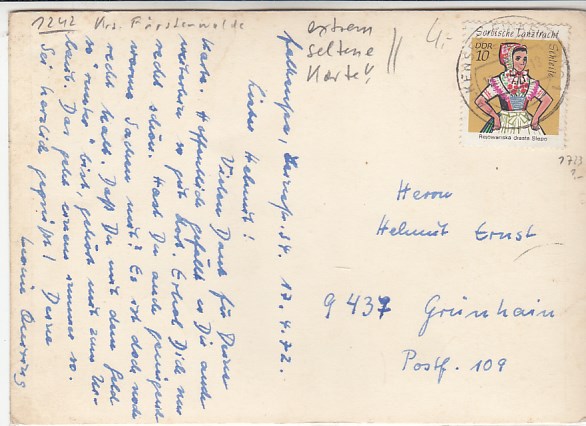 1242 Krs. Fürstenwalde
extrem
seltene
Karte!
4,-
Sorbische Tanztracht
Schleife
DDR
10
Rejowanska drasta Slepo
1723
17.4.72.
Lieber Helmut!
Vielen Dank für Deine
Karte. Hoffentlich gefällt es Dir auch
weiterhin so gut dort. Erhol Dich nur
recht schön. Hast Du auch genügend
warme Sachen mit? Es ist doch noch
recht kalt. Daß Du mit dem Geld
so "runter" bist, gehört mit zum Ur-
laub. Das geht einem immer so.
Sei herzlich gegrüßt! Deine
Herrn
Helmut Ernst
9437 Grünhain
Postf. 109